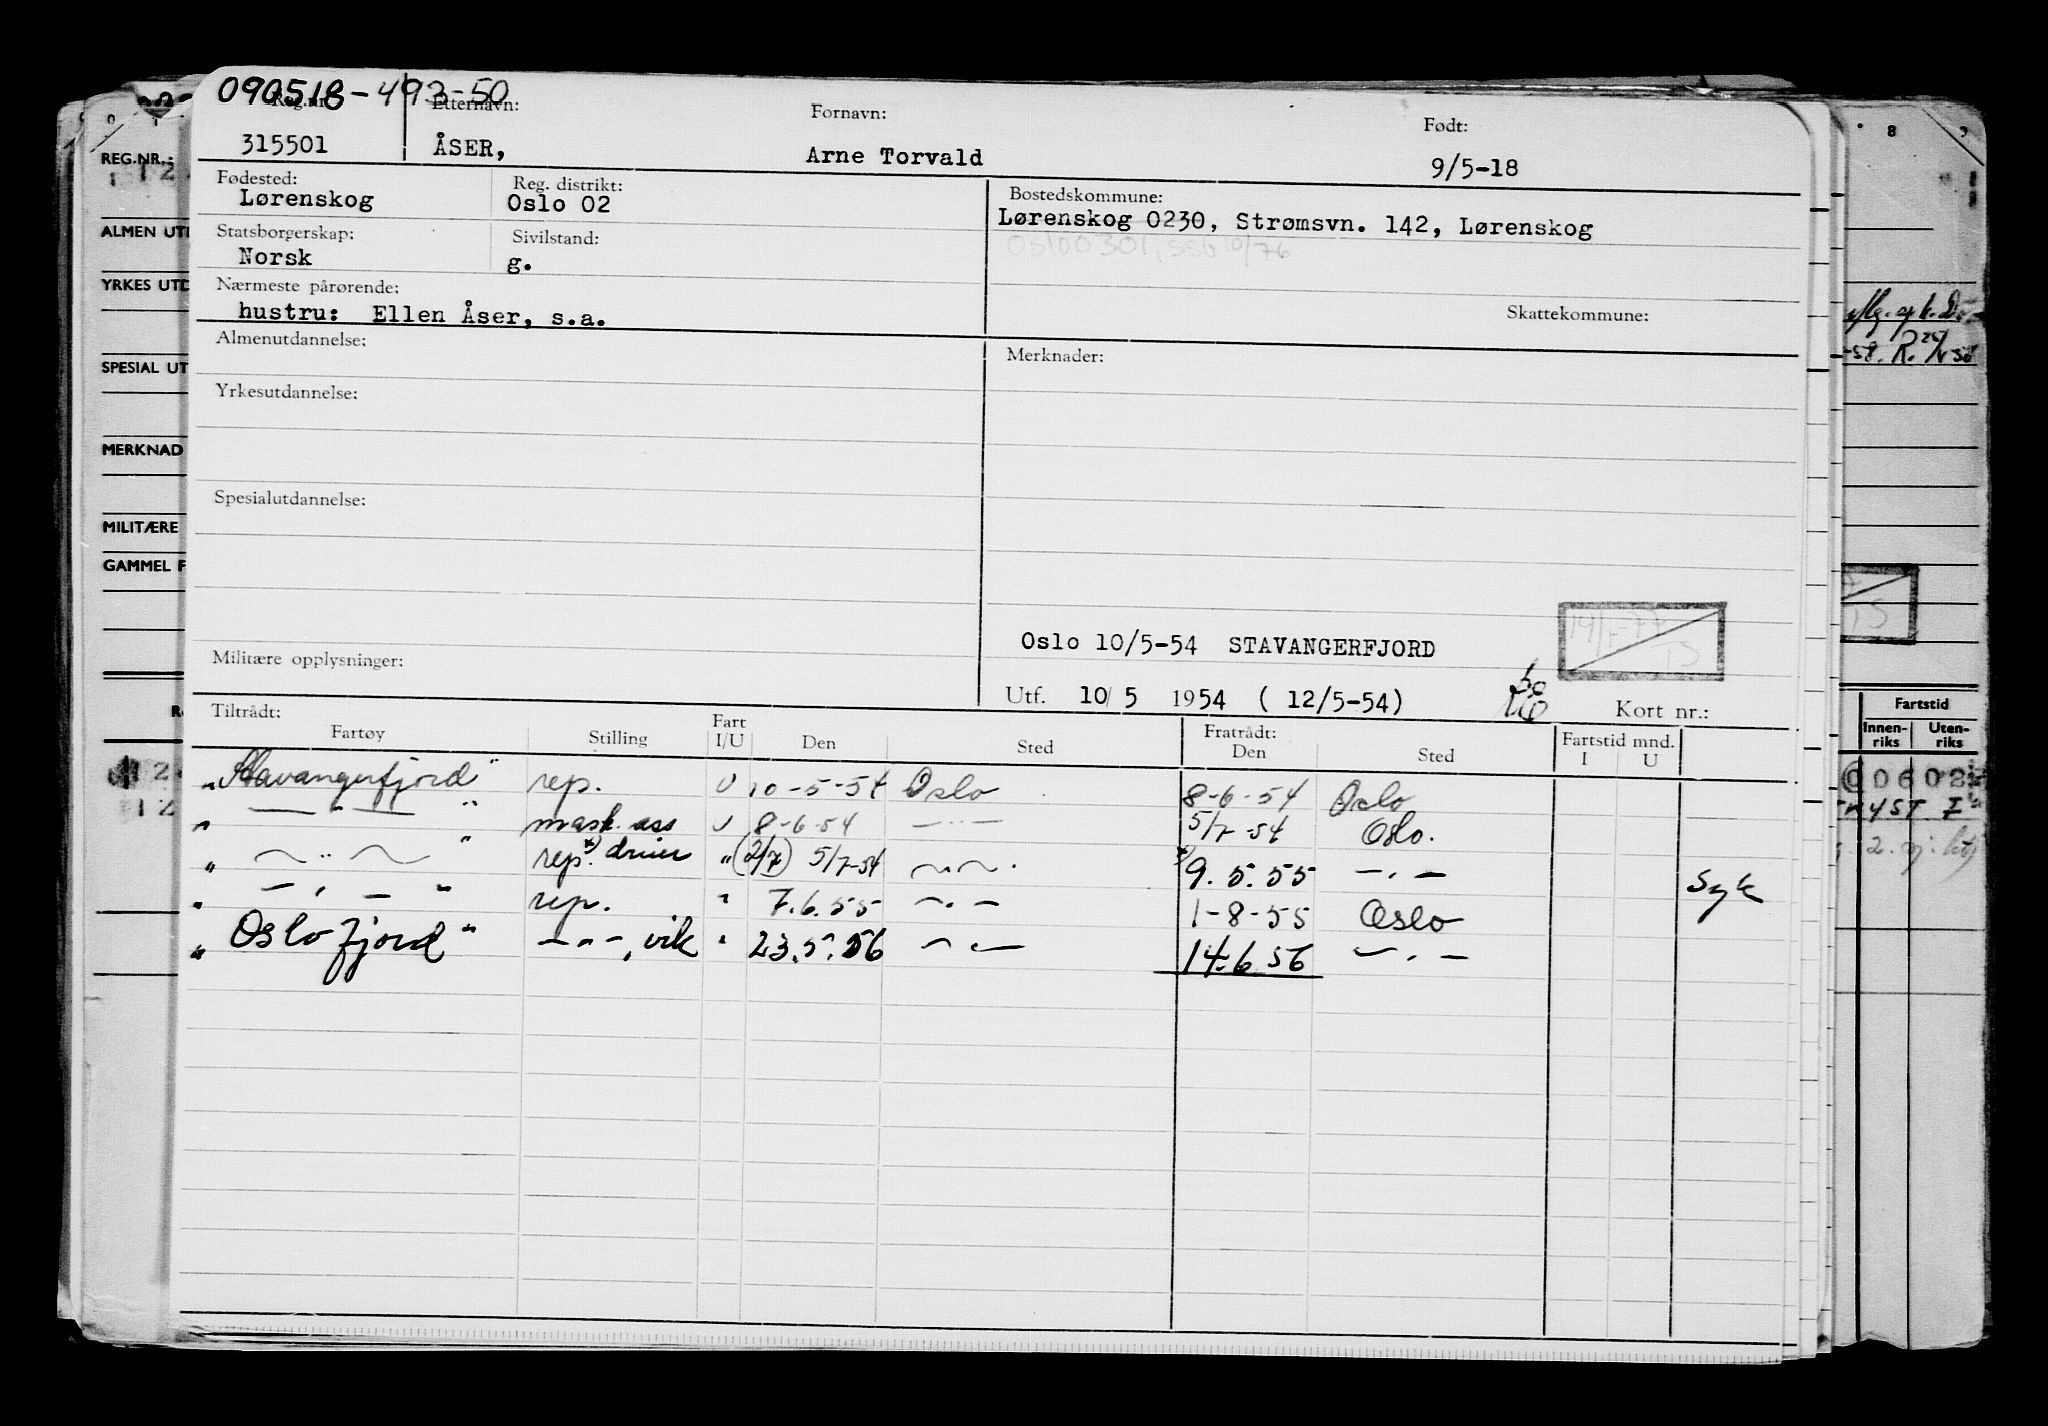 090518-493-50
Reg.nr. Etternavn: Fornavn: Født:
315501 ÅSER, Arne Torvald 9/5-18
Fødested: Reg. distrikt: Bostedskommune:
Lørenskog Oslo 02 Lørenskog 0230, Strømsvn. 142, Lørenskog
Statsborgerskap: Sivilstand: Oslo 0301, SSB 10/76
Norsk g.
Nærmeste pårørende: Skattekommune:
hustru: Ellen Åser, s.a.
Almenutdannelse: Merknader:
Yrkesutdannelse:
Spesialutdannelse:
Oslo 10/5-54 STAVANGERFJORD
Militære opplysninger:
Utf. 10/5 1954 (12/5-54) Kort nr.:
Tiltrådt: Fart Fratrådt: Fartstid mnd.
Fartøy Stilling I/U Den Sted Den Sted I U
"Stavangerfjord" rep. U 10-5-54 Oslo 8-6-54 Oslo
" — " — " mask. ass U 8-6-54 — " — 5/7-54 Oslo.
" — " — " rep. x) driver " (2/7) 5/7-54 — " — . x) 9.5.55 — " — Syk
" — " — " rep. " 7.6.55 — " — 1-8-55 Oslo
"Oslofjord" — " —, vik " 23.5.56 — " — 14.6.56 — " —
REG.NR.:
ALMEN UT
YRKES UTD
SPESIAL UT
MERKNAD
MILITÆRE
GAMMEL F
8 9
Fartstid
Innen-riks Uten-riks